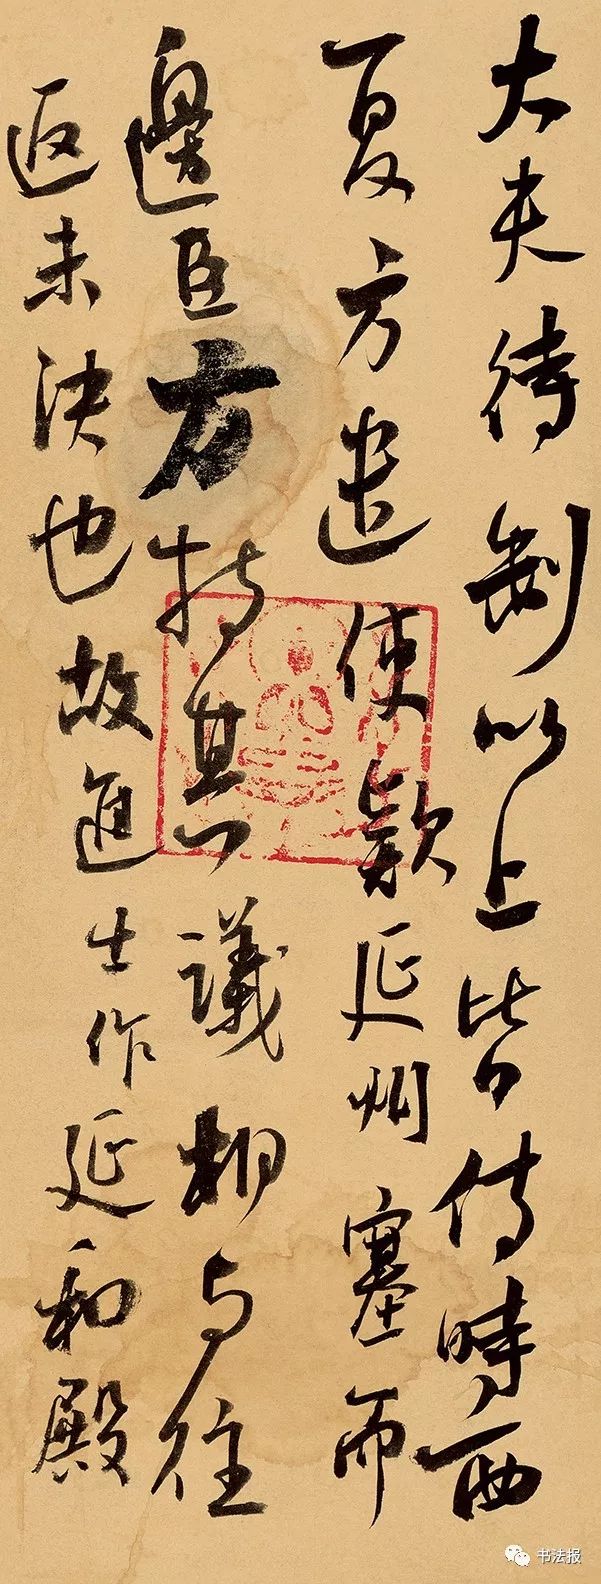 大夫待制以上皆侍時西
夏方遣使款延州塞而
邊臣方持其議相與往
返未決也故進士作延和殿
书法报